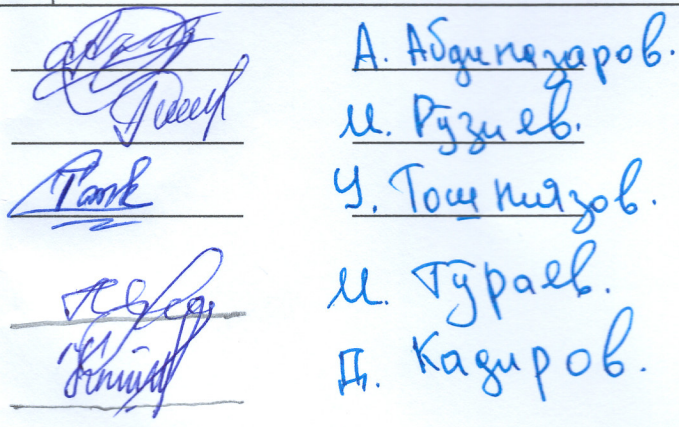 А. Абдиназаров.
И. Рўзиев.
У. Тошниязов.
И. Тўраев.
Д. Кадиров.